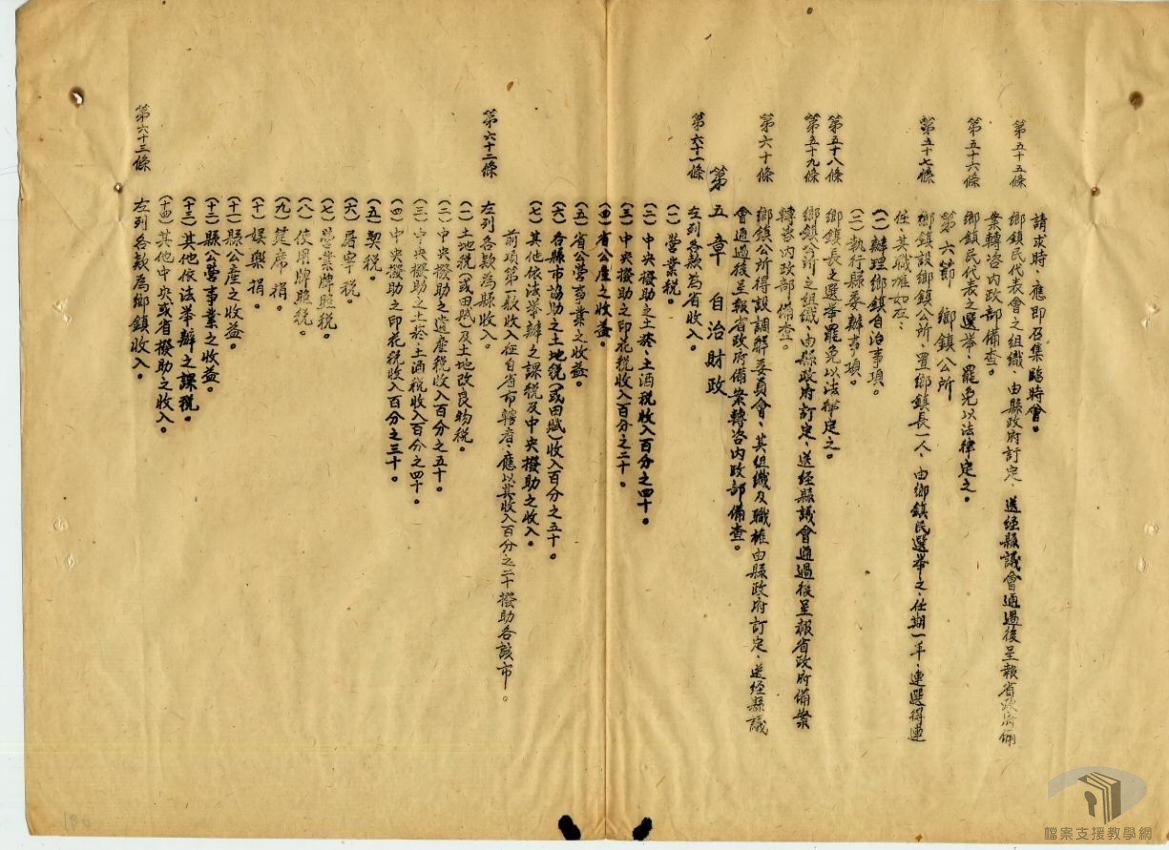 請求時、應即召集臨時會。
第五十五條 鄉鎮民代表會之組織、由縣政府訂定、送經縣議會通過後呈報省政府備
案轉咨內政部備查。
第五十六條 鄉鎮民代表之選舉、罷免以法律定之。
第六節 鄉鎮公所
第五十七條 鄉鎮設鄉鎮公所、置鄉鎮長一人、由鄉鎮民選舉之、任期一年、連選得連
任、其職權如左：
（一）辦理鄉鎮自治事項。
（二）執行縣委辦事項。
第五十八條 鄉鎮長之選舉罷免以法律定之。
第五十九條 鄉鎮公所之組織、由縣政府訂定、送經縣議會通過後呈報省政府備案
轉咨內政部備查。
第六十條 鄉鎮公所得設調解委員會、其組織及職權由縣政府訂定、送經縣議
會通過後呈報省政府備案轉咨內政部備查。
第五章 自治財政
第六十一條 左列各款為省收入。
（一）營業稅。
（二）中央撥助之土菸、土酒稅收入百分之四十。
（三）中央撥助之印花稅收入百分之二十。
（四）省公產之收益。
（五）省公營事業之收益。
（六）各縣市協助之土地稅（或田賦）收入百分之五十。
（七）其他依法舉辦之課稅及中央撥助之收入。
前項第一款收入征自省市轄者、應以其收入百分之二十撥助各該市。
第六十二條 左列各款為縣收入。
（一）土地稅（或田賦）及土地改良物稅。
（二）中央撥助之遺產稅收入百分之五十。
（三）中央撥助之土菸、土酒稅收入百分之四十。
（四）中央撥助之印花稅收入百分之三十。
（五）契稅。
（六）屠宰稅。
（七）營業牌照稅。
（八）使用牌照稅。
（九）筵席捐。
（十）娛樂捐。
（十一）縣公產之收益。
（十二）縣公營事業之收益。
（十三）其他依法舉辦之課稅。
（十四）其他中央或省撥助之收入。
第六十三條 左列各款為鄉鎮收入。
檔案支援教學網